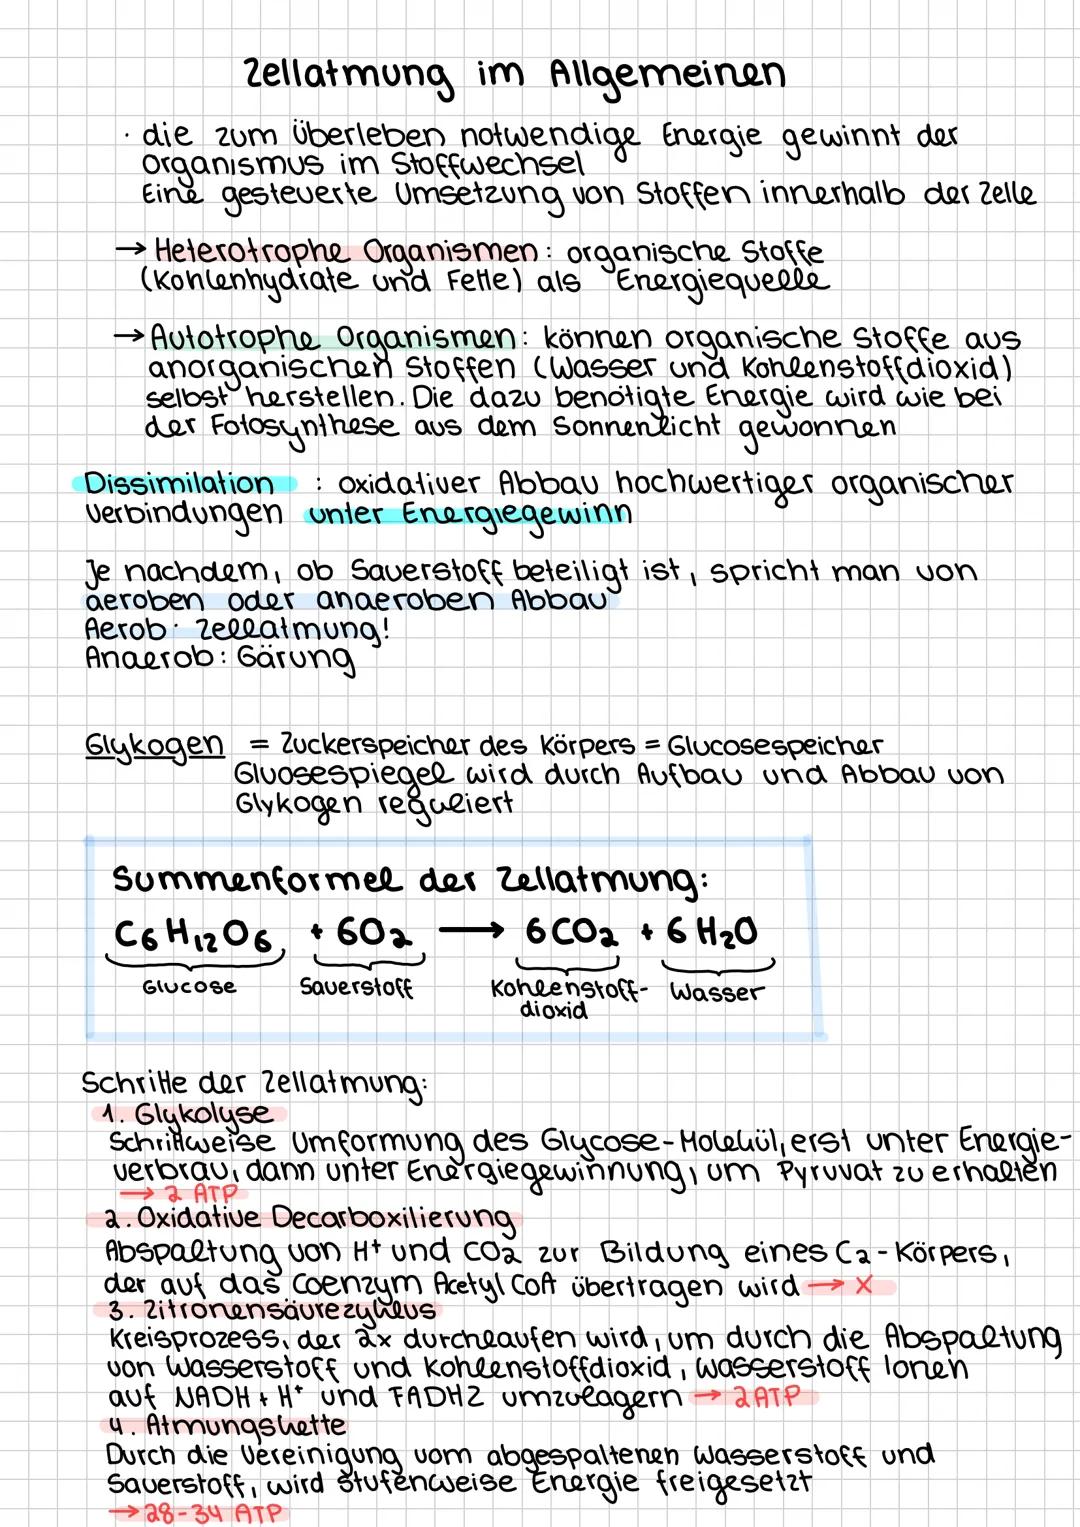 Zellatmung im Allgemeinen
· die zum Überleben notwendige Energie gewinnt der
Organismus im Stoffwechsel
Eine gesteuerte Umsetzung von Stoffen innerhalb der Zelle
→ Heterotrophe Organismen: organische Stoffe
(Kohlenhydrate und Fette) als Energiequelle
→ Autotrophe Organismen: können organische Stoffe aus
anorganischen Stoffen (Wasser und Kohlenstoffdioxid)
selbst herstellen. Die dazu benötigte Energie wird wie bei
der Fotosynthese aus dem Sonnenlicht gewonnen
Dissimilation : oxidativer Abbau hochwertiger organischer
Verbindungen unter Energiegewinn
Je nachdem, ob Sauerstoff beteiligt ist, spricht man von
aeroben oder anaeroben Abbau
Aerob: Zellatmung!
Anaerob: Gärung
Glykogen = Zuckerspeicher des Körpers = Glucosespeicher
Gluosespiegel wird durch Aufbau und Abbau von
Glykogen reguliert
Summenformel der Zellatmung:
C6H12O6 + 6O2 → 6CO2 + 6H2O
Glucose Sauerstoff Kohlenstoff- Wasser
dioxid
Schritte der Zellatmung:
1. Glykolyse
Schrittweise Umformung des Glycose-Molekül, erst unter Energie-
verbrau, dann unter Energiegewinnung, um Pyruvat zu erhalten
→ 2 ATP
2. Oxidative Decarboxilierung
Abspaltung von H+ und CO2 zur Bildung eines C2-Körpers,
der auf das Coenzym Acetyl CoA übertragen wird → X
3. Zitronensäurezyklus
Kreisprozess, der 2x durchlaufen wird, um durch die Abspaltung
von Wasserstoff und Kohlenstoffdioxid, wasserstoff Ionen
auf NADH + H+ und FADH2 umzulagern → 2ATP
4. Atmungskette
Durch die Vereinigung vom abgespaltenen Wasserstoff und
Sauerstoff, wird stufenweise Energie freigesetzt
→ 28-34 ATP